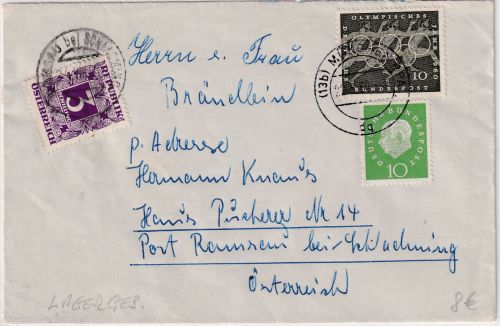 Herrn u. Frau
Brändlein
p. Adresse
Hermann Knaus
Haus Pucherer Nr 14
Post Ramsau bei Schladming
Österreich
REPUBLIK
5
ÖSTERREICH
OLYMPISCHES
JAHR 1960
10
DEUTSCHE BUNDESPOST
10
(13b)
LAGERGEB.
8€